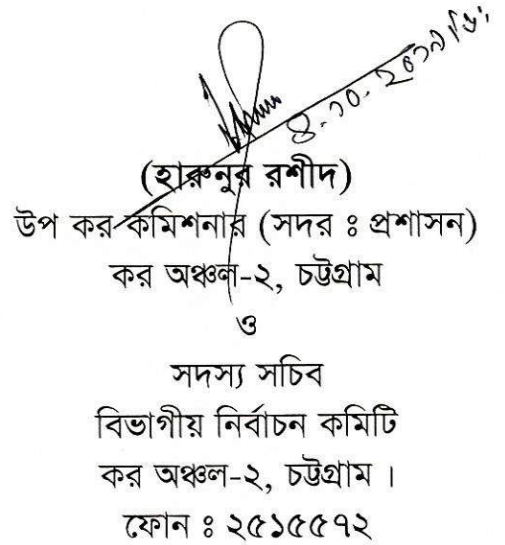 (হারুনুর রশীদ)
উপ কর কমিশনার (সদর ঃ প্রশাসন)
কর অঞ্চল-২, চট্টগ্রাম
ও
সদস্য সচিব
বিভাগীয় নির্বাচন কমিটি
কর অঞ্চল-২, চট্টগ্রাম ।
ফোন ঃ ২৫১৫৫৭২